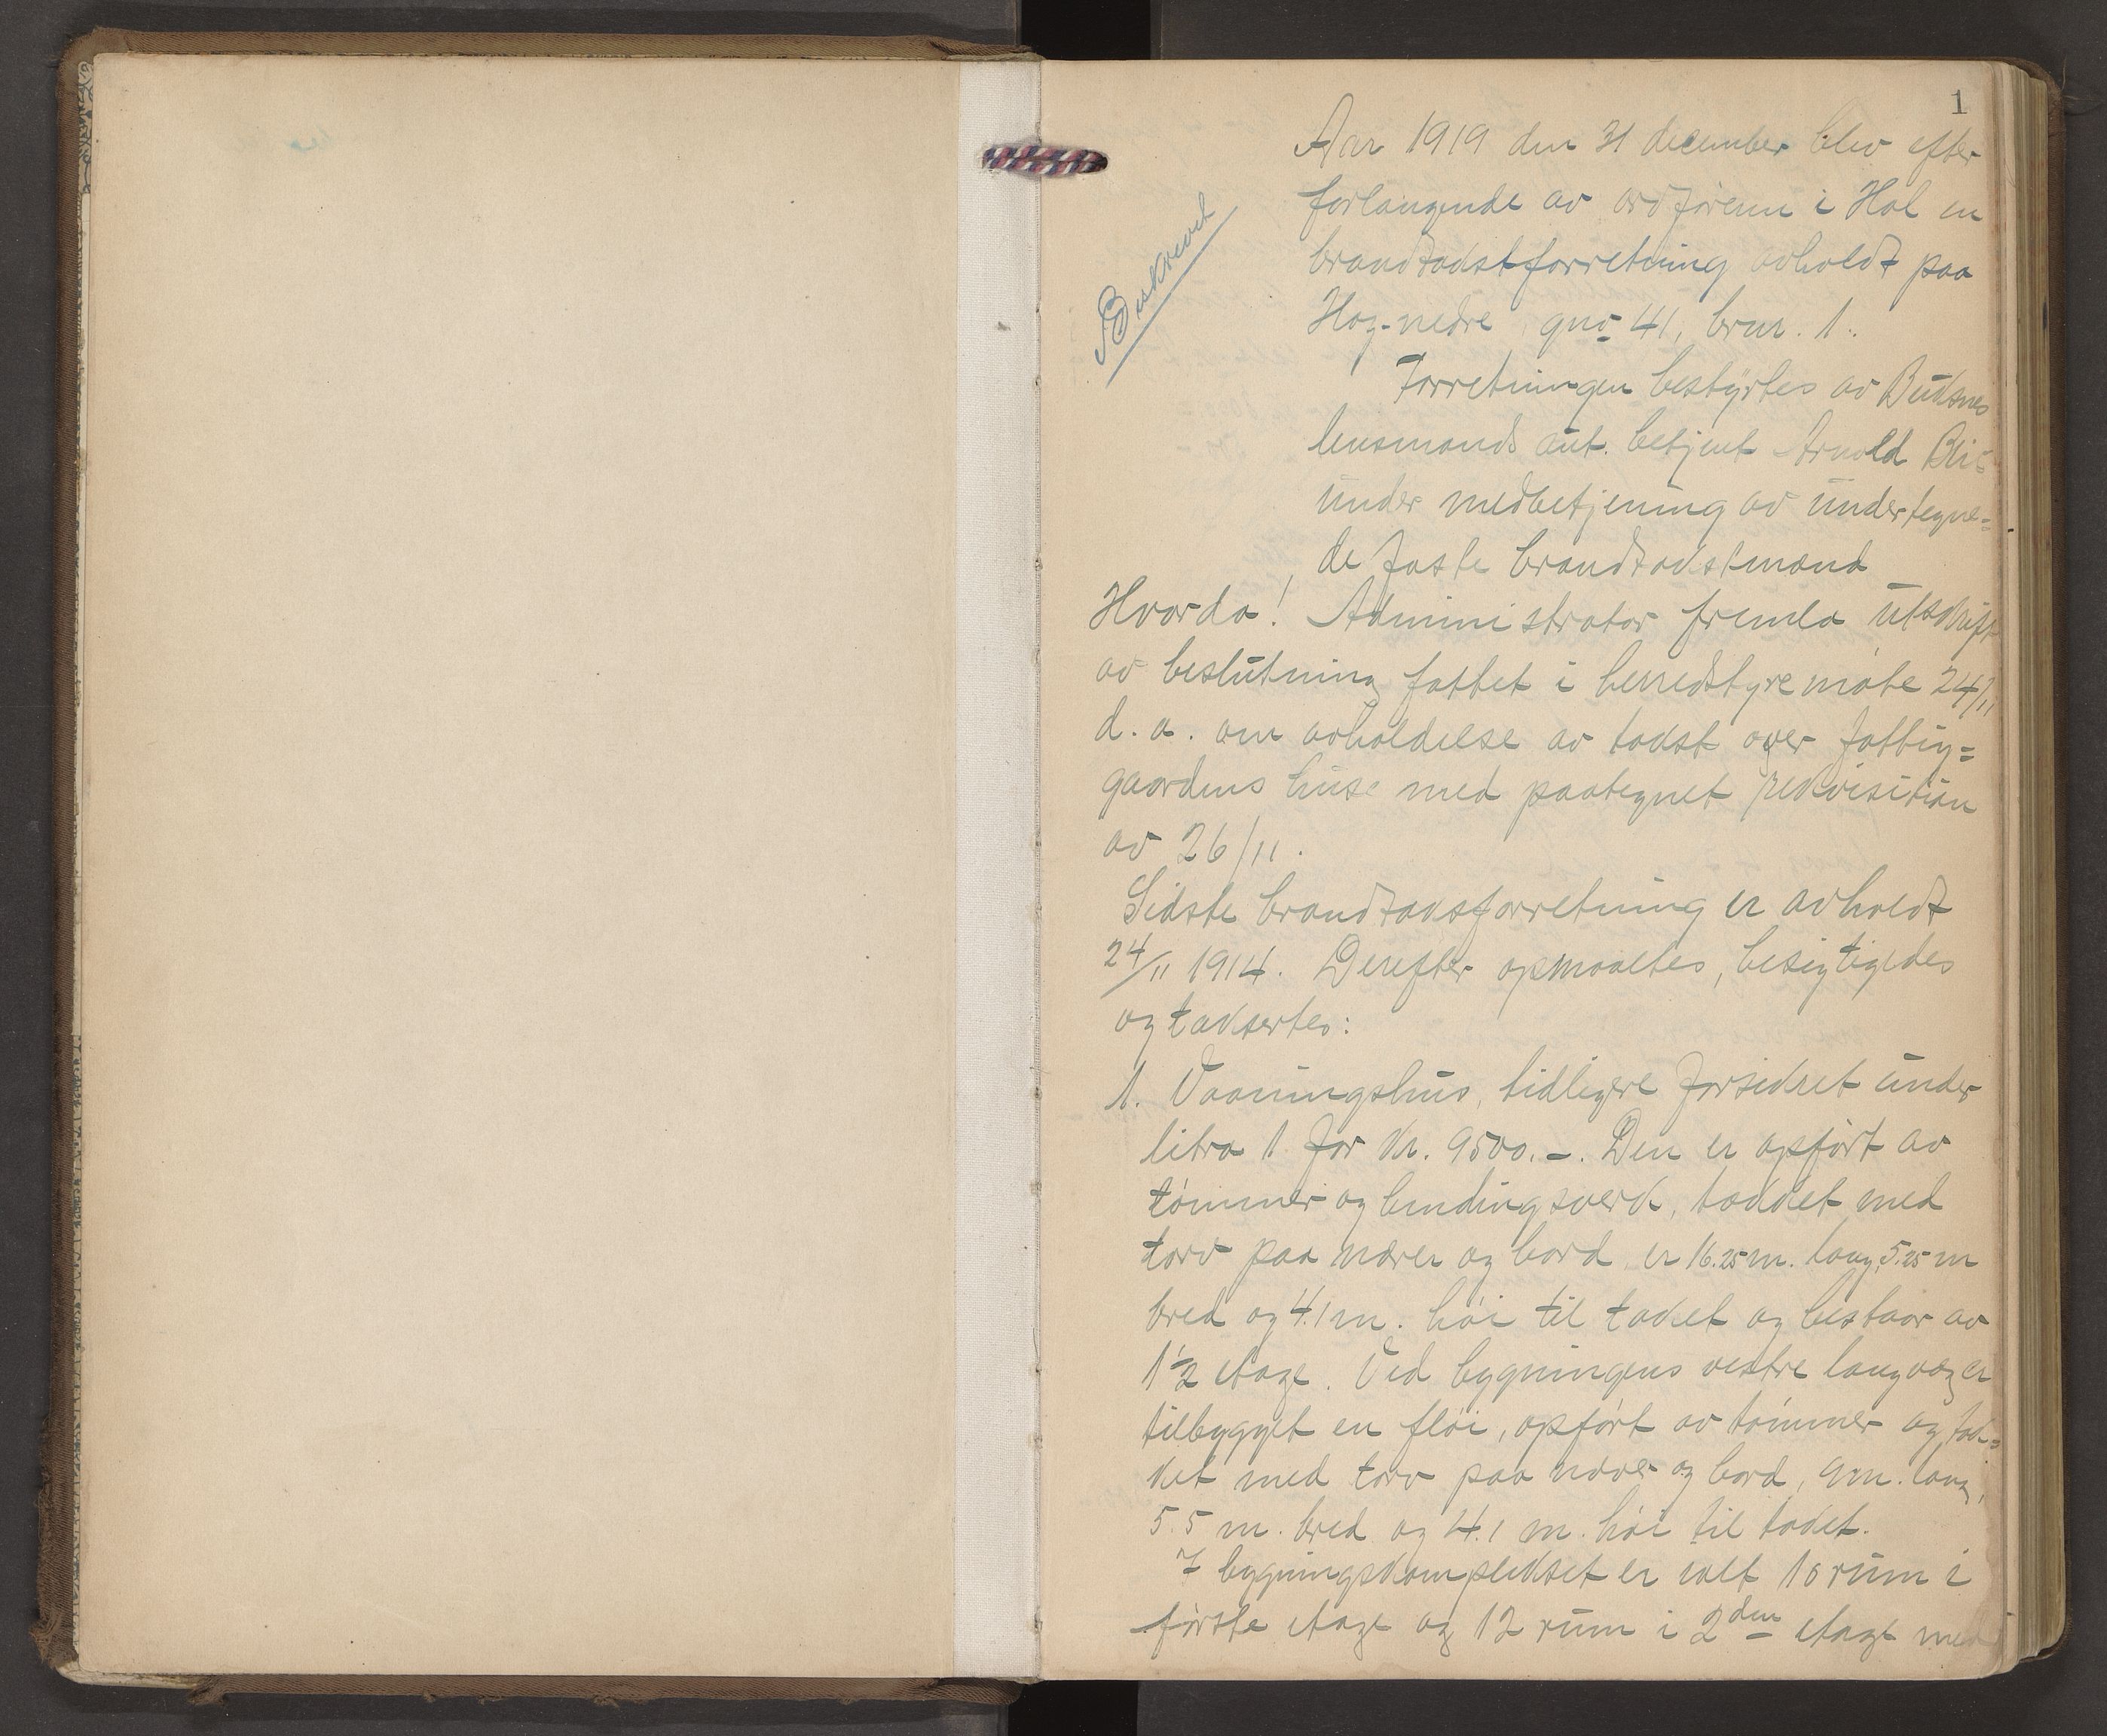 1
Aar 1919 den 31 december blev efter
forlangende av ordføreren i Hol en
brandtakstforretning avholdt paa
Hag-nedre, gno 41, brnr. 1.
Beskrevet
Forretningen bestyrtes av Buksnes
lensmands aut. betjent Arnold Blix
under medbetjening av undertegne=
de faste brandtakstmænd
Hvorda! Administrator fremla utskrift
av beslutning fattet i herredstyremøte 24/11
d. a. om avholdelse av takst over fattig=
gaardens huse med paategnet rekvisition
av 26/11.
Sidste brandtaksforretning er avholdt
24/11 1914. Derefter opmaaltes, besigtigedes
og taksertes:
1. Vaaningshus, tidligere forsikret under
litra 1 for kr. 9500.-. Den er opført av
tømmer og bindingsverk, tækket med
torv paa næver og bord, er 16.25 m. lang, 5.25 m
bred og 4.1 m. høi til taket og bestaar av
1½ etage. Ved bygningens vestre langvæg er
tilbygget en fløi, opført av tømmer og tæk=
ket med torv paa næver og bord, 9 m. lang,
5.5 m. bred og 4.1 m. høi til taket.
I bygningskomplekset er ialt 10 rum i
første etage og 12 rum i 2den etage med